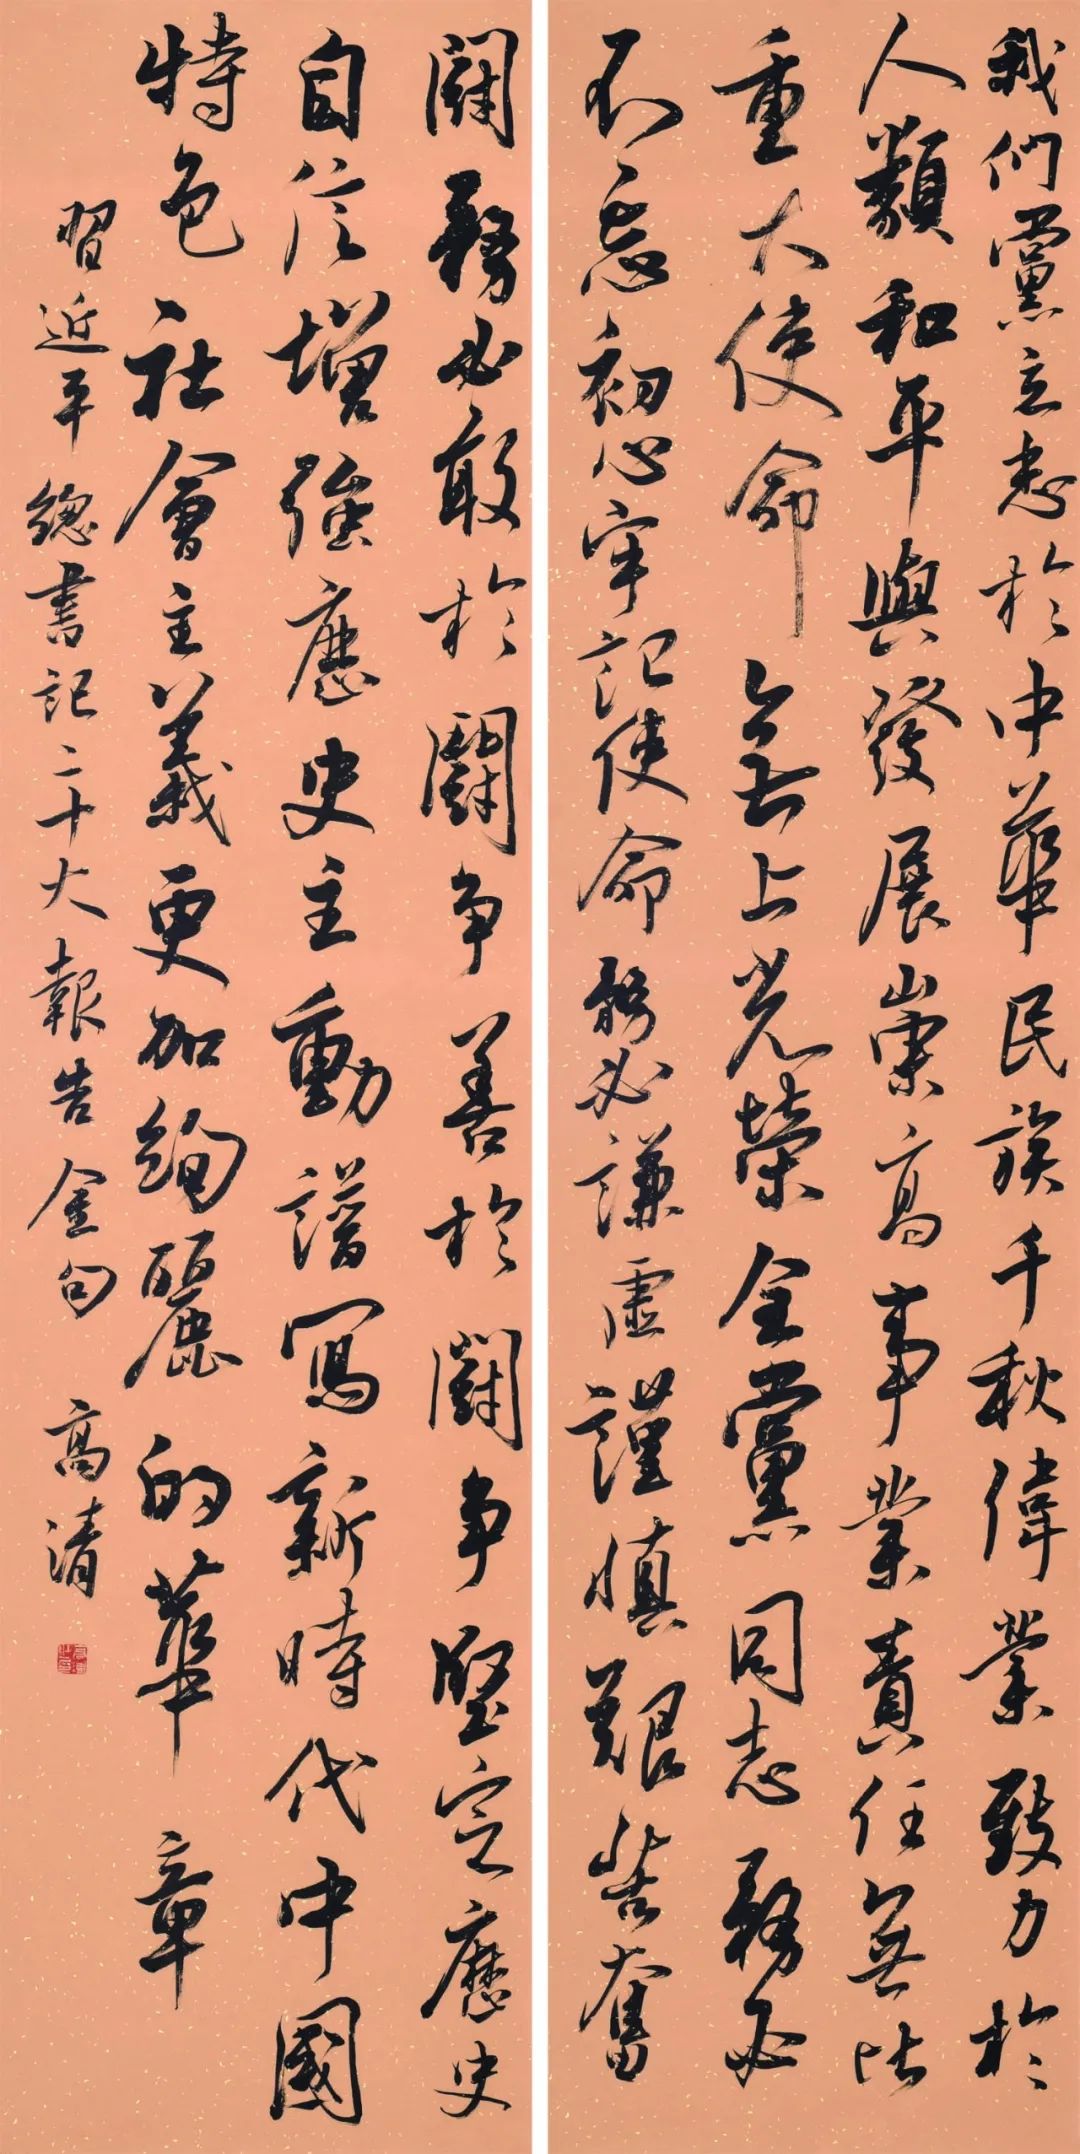 我們黨立志於中華民族千秋偉業致力於
人類和平與發展崇高事業責任無比
重大使命無上光榮全黨同志務必
不忘初心牢記使命務必謙虛謹慎艱苦奮
鬪務必敢於鬪争善於鬪争堅定歷史
自信增強歷史主動譜寫新時代中國
特色社會主義更加絢麗的華章
習近平總書記二十大報告金句 高清